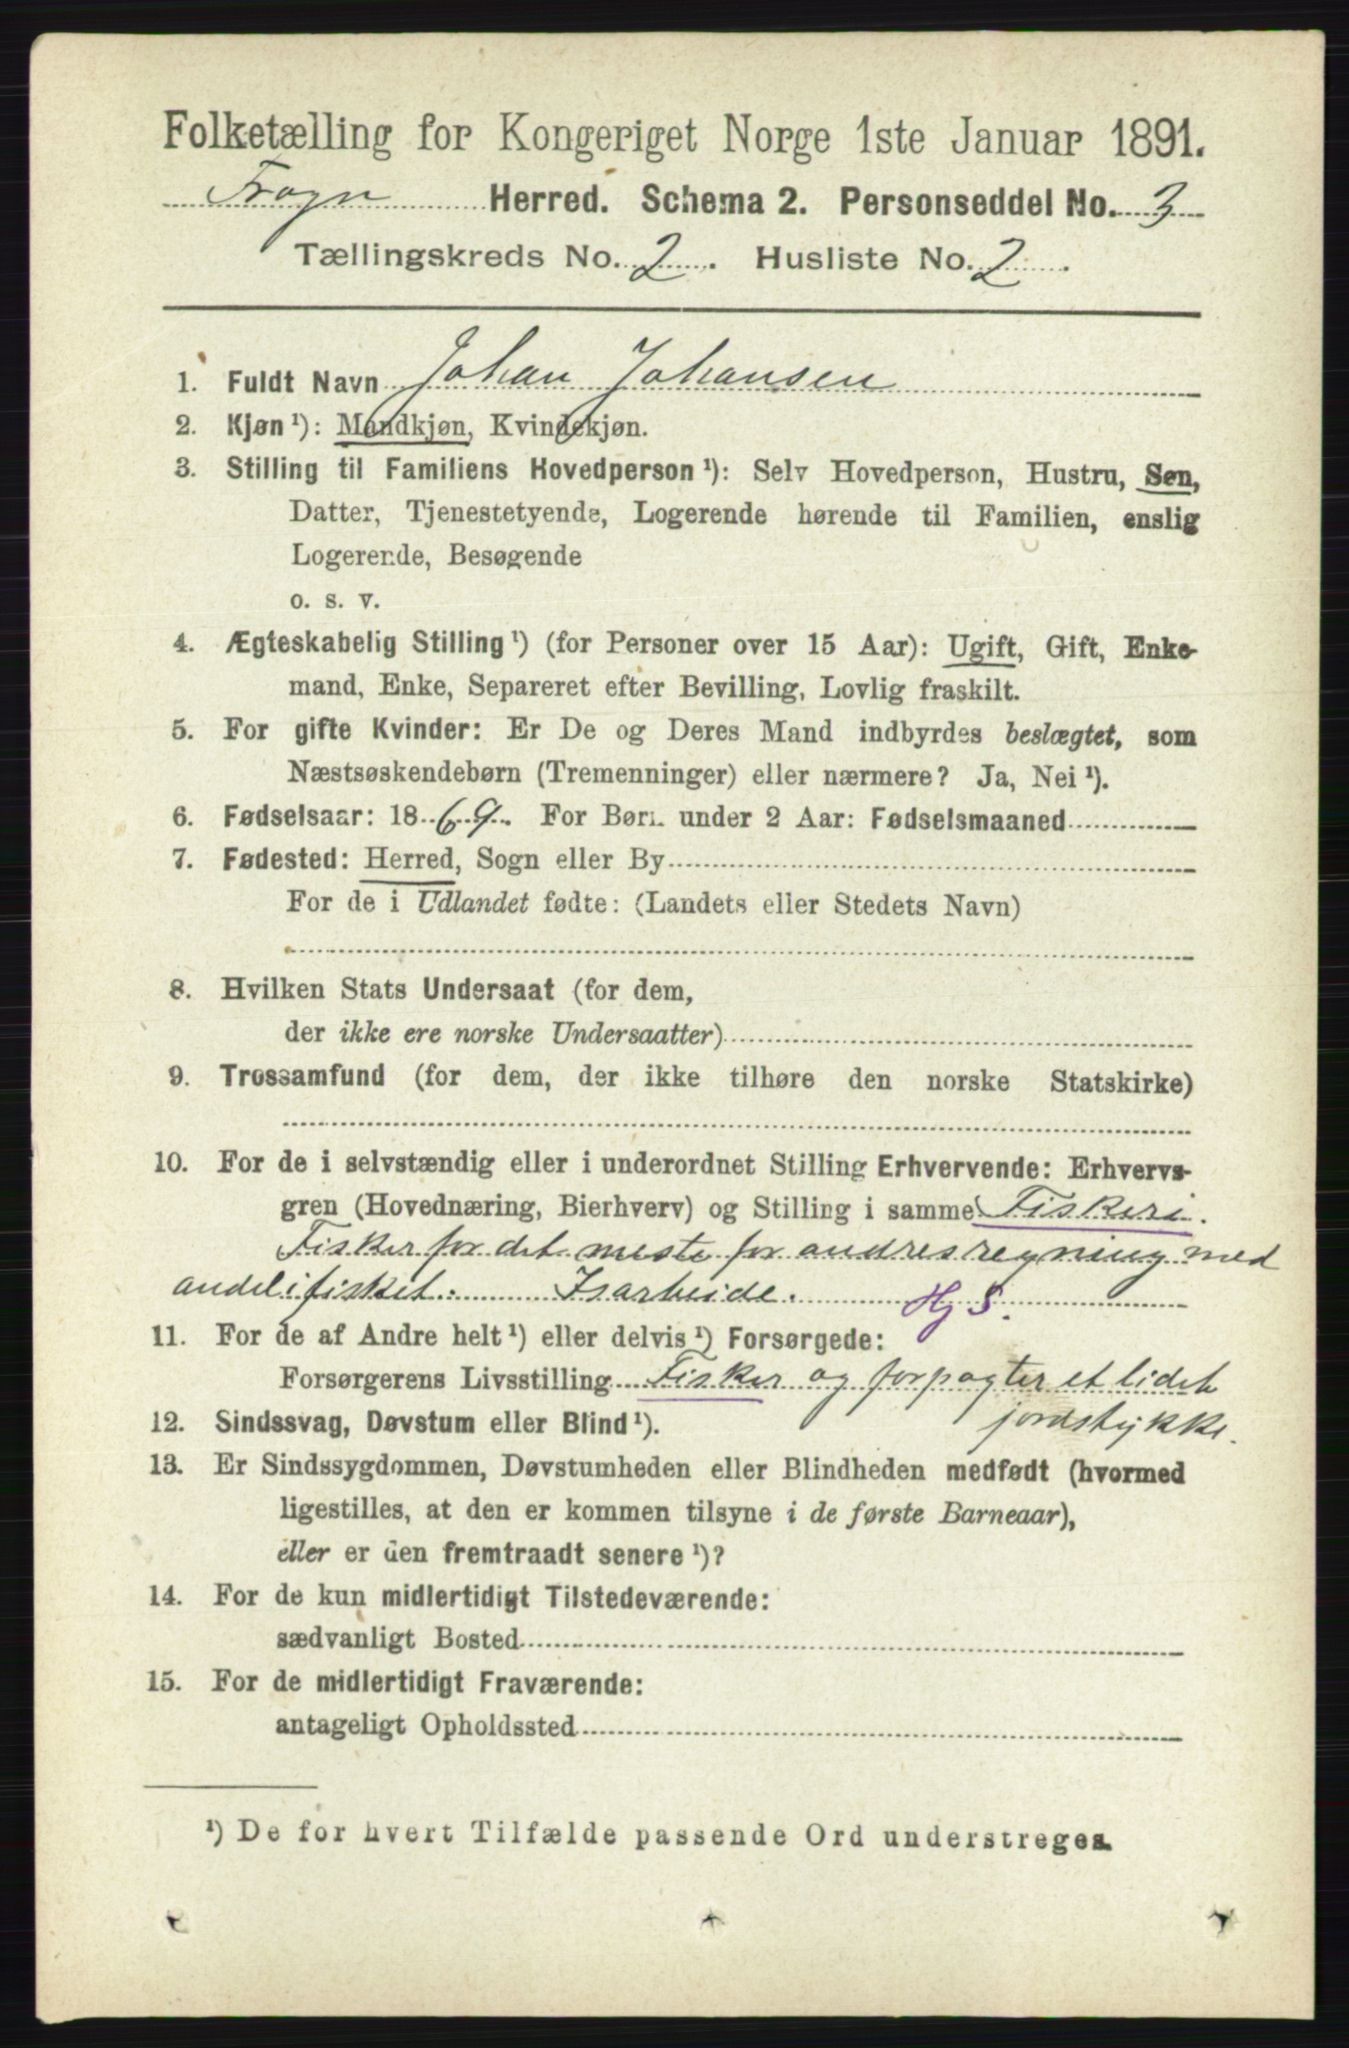 Folketælling for Kongeriget Norge 1ste Januar 1891.
Frogn Herred. Schema 2. Personseddel No. 3
Tællingskreds No. 2. Husliste No. 2.
1. Fuldt Navn Johan Johansen
2. Kjøn ¹): Mandkjøn, Kvindekjøn.
3. Stilling til Familiens Hovedperson ¹): Selv Hovedperson, Hustru, Søn,
Datter, Tjenestetyende, Logerende hørende til Familien, enslig
Logerende, Besøgende
o. s. v.
4. Ægteskabelig Stilling ¹) (for Personer over 15 Aar): Ugift, Gift, Enke-
mand, Enke, Separeret efter Bevilling, Lovlig fraskilt.
5. For gifte Kvinder: Er De og Deres Mand indbyrdes beslægtet, som
Næstsøskendebørn (Tremenninger) eller nærmere? Ja, Nei ¹).
6. Fødselsaar: 1869. For Børn under 2 Aar: Fødselsmaaned
7. Fødested: Herred, Sogn eller By
For de i Udlandet fødte: (Landets eller Stedets Navn)
8. Hvilken Stats Undersaat (for dem,
der ikke ere norske Undersaatter)
9. Trossamfund (for dem, der ikke tilhøre den norske Statskirke)
10. For de i selvstændig eller i underordnet Stilling Erhvervende: Erhvervs-
gren (Hovednæring, Bierhverv) og Stilling i samme Fiskeri.
Fisker for det meste for andres regning med
andel i fisket. Isarbeide. Hj S.
11. For de af Andre helt ¹) eller delvis ¹) Forsørgede:
Forsørgerens Livsstilling Fisker og forpagter et lidet
jordstykke.
12. Sindssvag, Døvstum eller Blind ¹).
13. Er Sindssygdommen, Døvstumheden eller Blindheden medfødt (hvormed
ligestilles, at den er kommen tilsyne i de første Barneaar),
eller er den fremtraadt senere ¹)?
14. For de kun midlertidigt Tilstedeværende:
sædvanligt Bosted
15. For de midlertidigt Fraværende:
antageligt Opholdssted
¹) De for hvert Tilfælde passende Ord understreges.